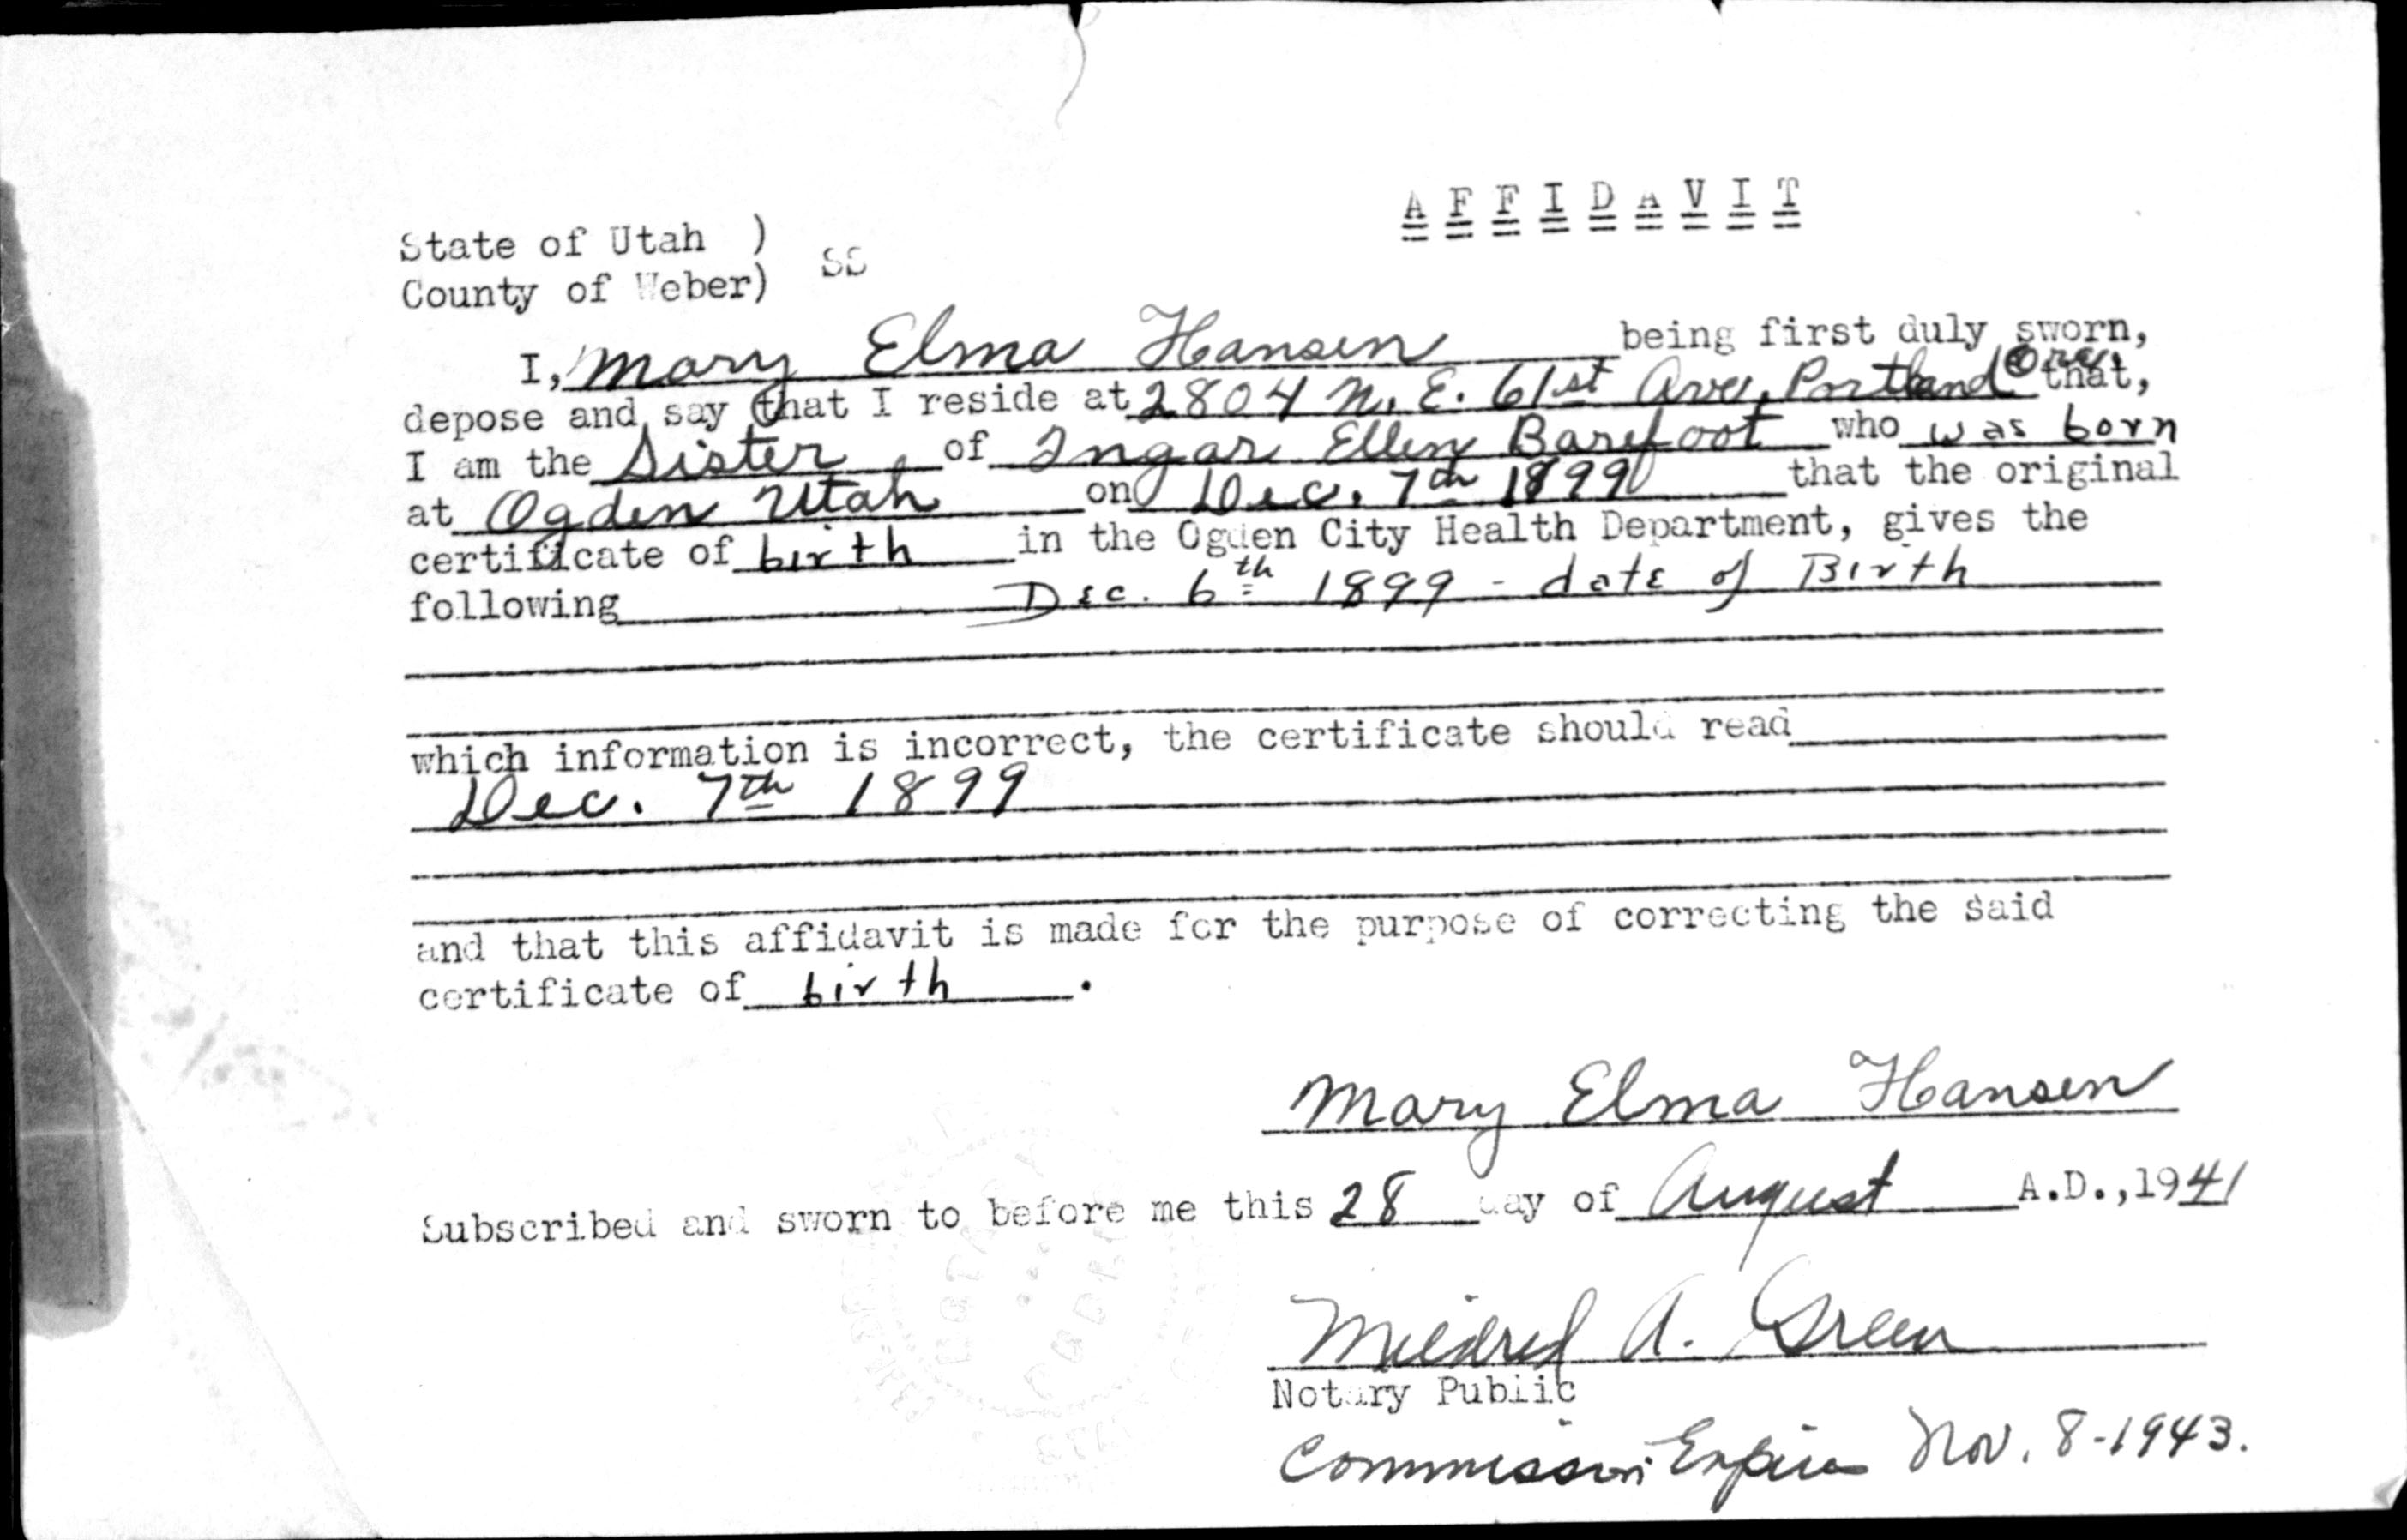 A F F I D A V I T
State of Utah )
County of Weber) SS
I, Mary Elma Hansen being first duly sworn,
depose and say that I reside at 2804 N. E. 61st Ave, Portland Ore. that,
I am the Sister of Ingar Ellen Barefoot who was born
at Ogden Utah on Dec. 7th 1899 that the original
certificate of birth in the Ogden City Health Department, gives the
following Dec. 6th 1899 - date of Birth
which information is incorrect, the certificate should read
Dec. 7th 1899
and that this affidavit is made for the purpose of correcting the said
certificate of birth.
Mary Elma Hansen
Subscribed and sworn to before me this 28 day of August A.D., 1941
Mildred A. Green
Notary Public
Commission Expires Nov. 8-1943.